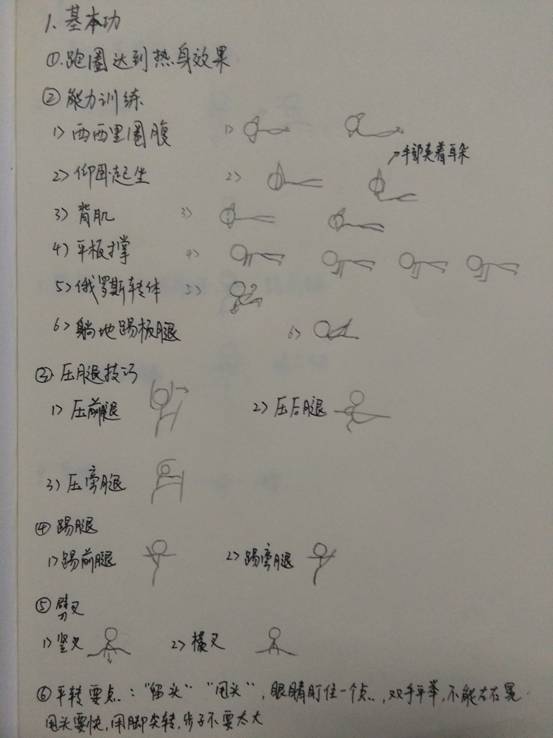 1. 基本功
①. 跑圈达到热身效果
② 能力训练
1> 西西里圈腹 1>
→手部夹着耳朵
2> 仰卧起坐 2>
3> 背肌 3>
4> 平板撑 4>
5> 俄罗斯转体 5>
6> 躺地踢前腿 6>
③ 压腿技巧
1> 压前腿 2> 压后腿
3> 压旁腿
④ 踢腿
1> 踢前腿 2> 踢旁腿
⑤ 劈叉
1> 竖叉 2> 横叉
⑥ 平转要点:“留头”“甩头”,眼睛盯住一个点,双手平举,不能左右晃
甩头要快,用脚尖转,步子不要太大